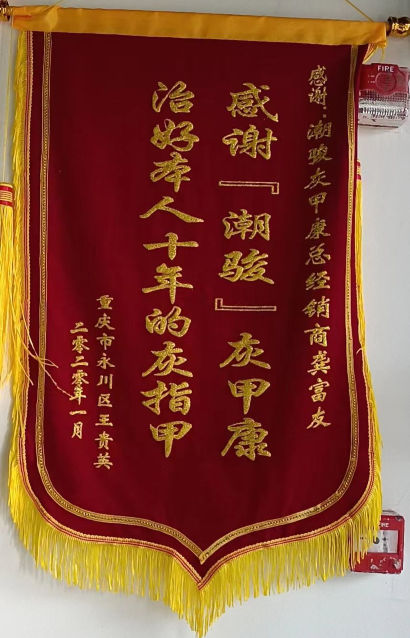 感谢:潮骏灰甲康总经销商龚富友
感谢『潮骏』灰甲康
治好本人十年的灰指甲
重庆市永川区王贵英
二零二零年一月
FIRE
FIRE